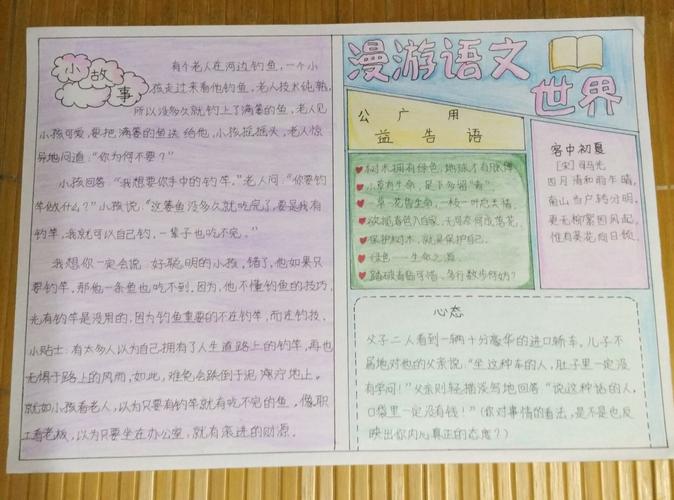 小故事
有个老人在河边钓鱼,一个小
孩走过来看他钓鱼,老人技术纯熟,
所以没多久就钓上了满篓的鱼,老人见
小孩可爱,要把满篓的鱼送给他,小孩摇摇头,老人惊
异地问道:“你为何不要?”
小孩回答:“我想要你手中的钓竿。”老人问:“你要钓
竿做什么?”小孩说:“这篓鱼没多久就吃完了,要是我有
钓竿,我就可以自己钓,一辈子也吃不完。”
我想你一定会说:好聪明的小孩,错了,他如果只
要钓竿,那他一条鱼也吃不到,因为,他不懂钓鱼的技巧,
光有钓竿是没用的,因为钓鱼重要的不在钓竿,而在钓技。
小贴士:有太多人以为自己拥有了人生道路上的钓竿,再也
无惧于路上的风雨,如此,难免会跌倒于泥泞地上。
就如小孩看老人,以为只要有钓竿就有吃不完的鱼,像职
工看老板,以为只要坐在办公室,就有滚进的财源。
漫游语文
世界
公广用
益告语
树木拥有绿色,地球才有脉搏
小草有生命,足下多留“青”
一草一花皆生命,一枝一叶总关情
欲揽春色入自家,无可奈何成落花
保护树木,就是保护自己
绿色——生命之源
踏破青毯可惜,多行数步何妨?
客中初夏
[宋]司马光
四月清和雨乍晴,
南山当户转分明。
更无柳絮因风起,
惟有葵花向日倾。
心态
父子二人看到一辆十分豪华的进口轿车。儿子不
屑地对他的父亲说:“坐这种车的人,肚子里一定没
有学问!”父亲则轻描淡写地回答:“说这种话的人,
口袋里一定没有钱!”(你对事情的看法,是不是也反
映出你内心真正的态度?)